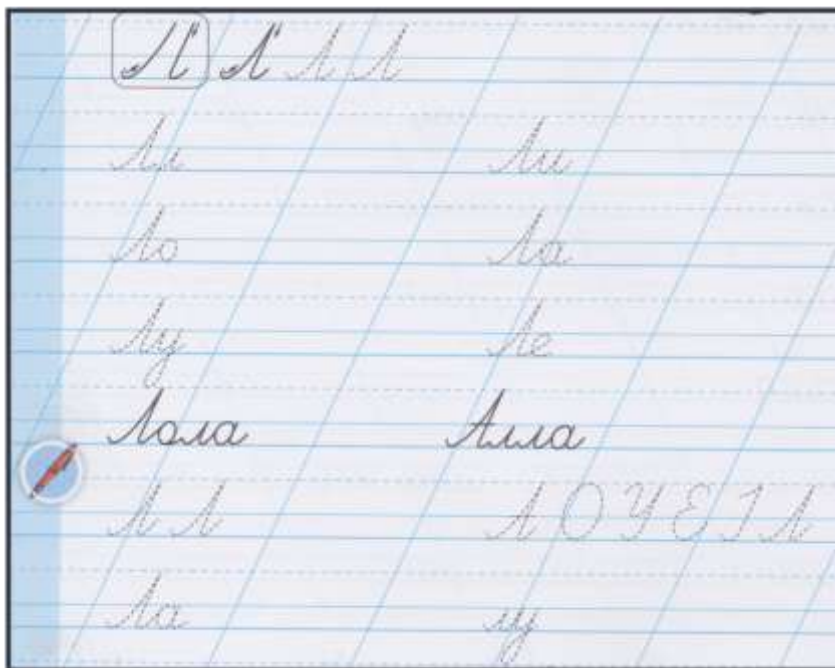 Л Л Л Л
Лл Ли
Ло Ла
Лу Ле
Лола Алла
Л Л А О У Е І Л
Ла лу